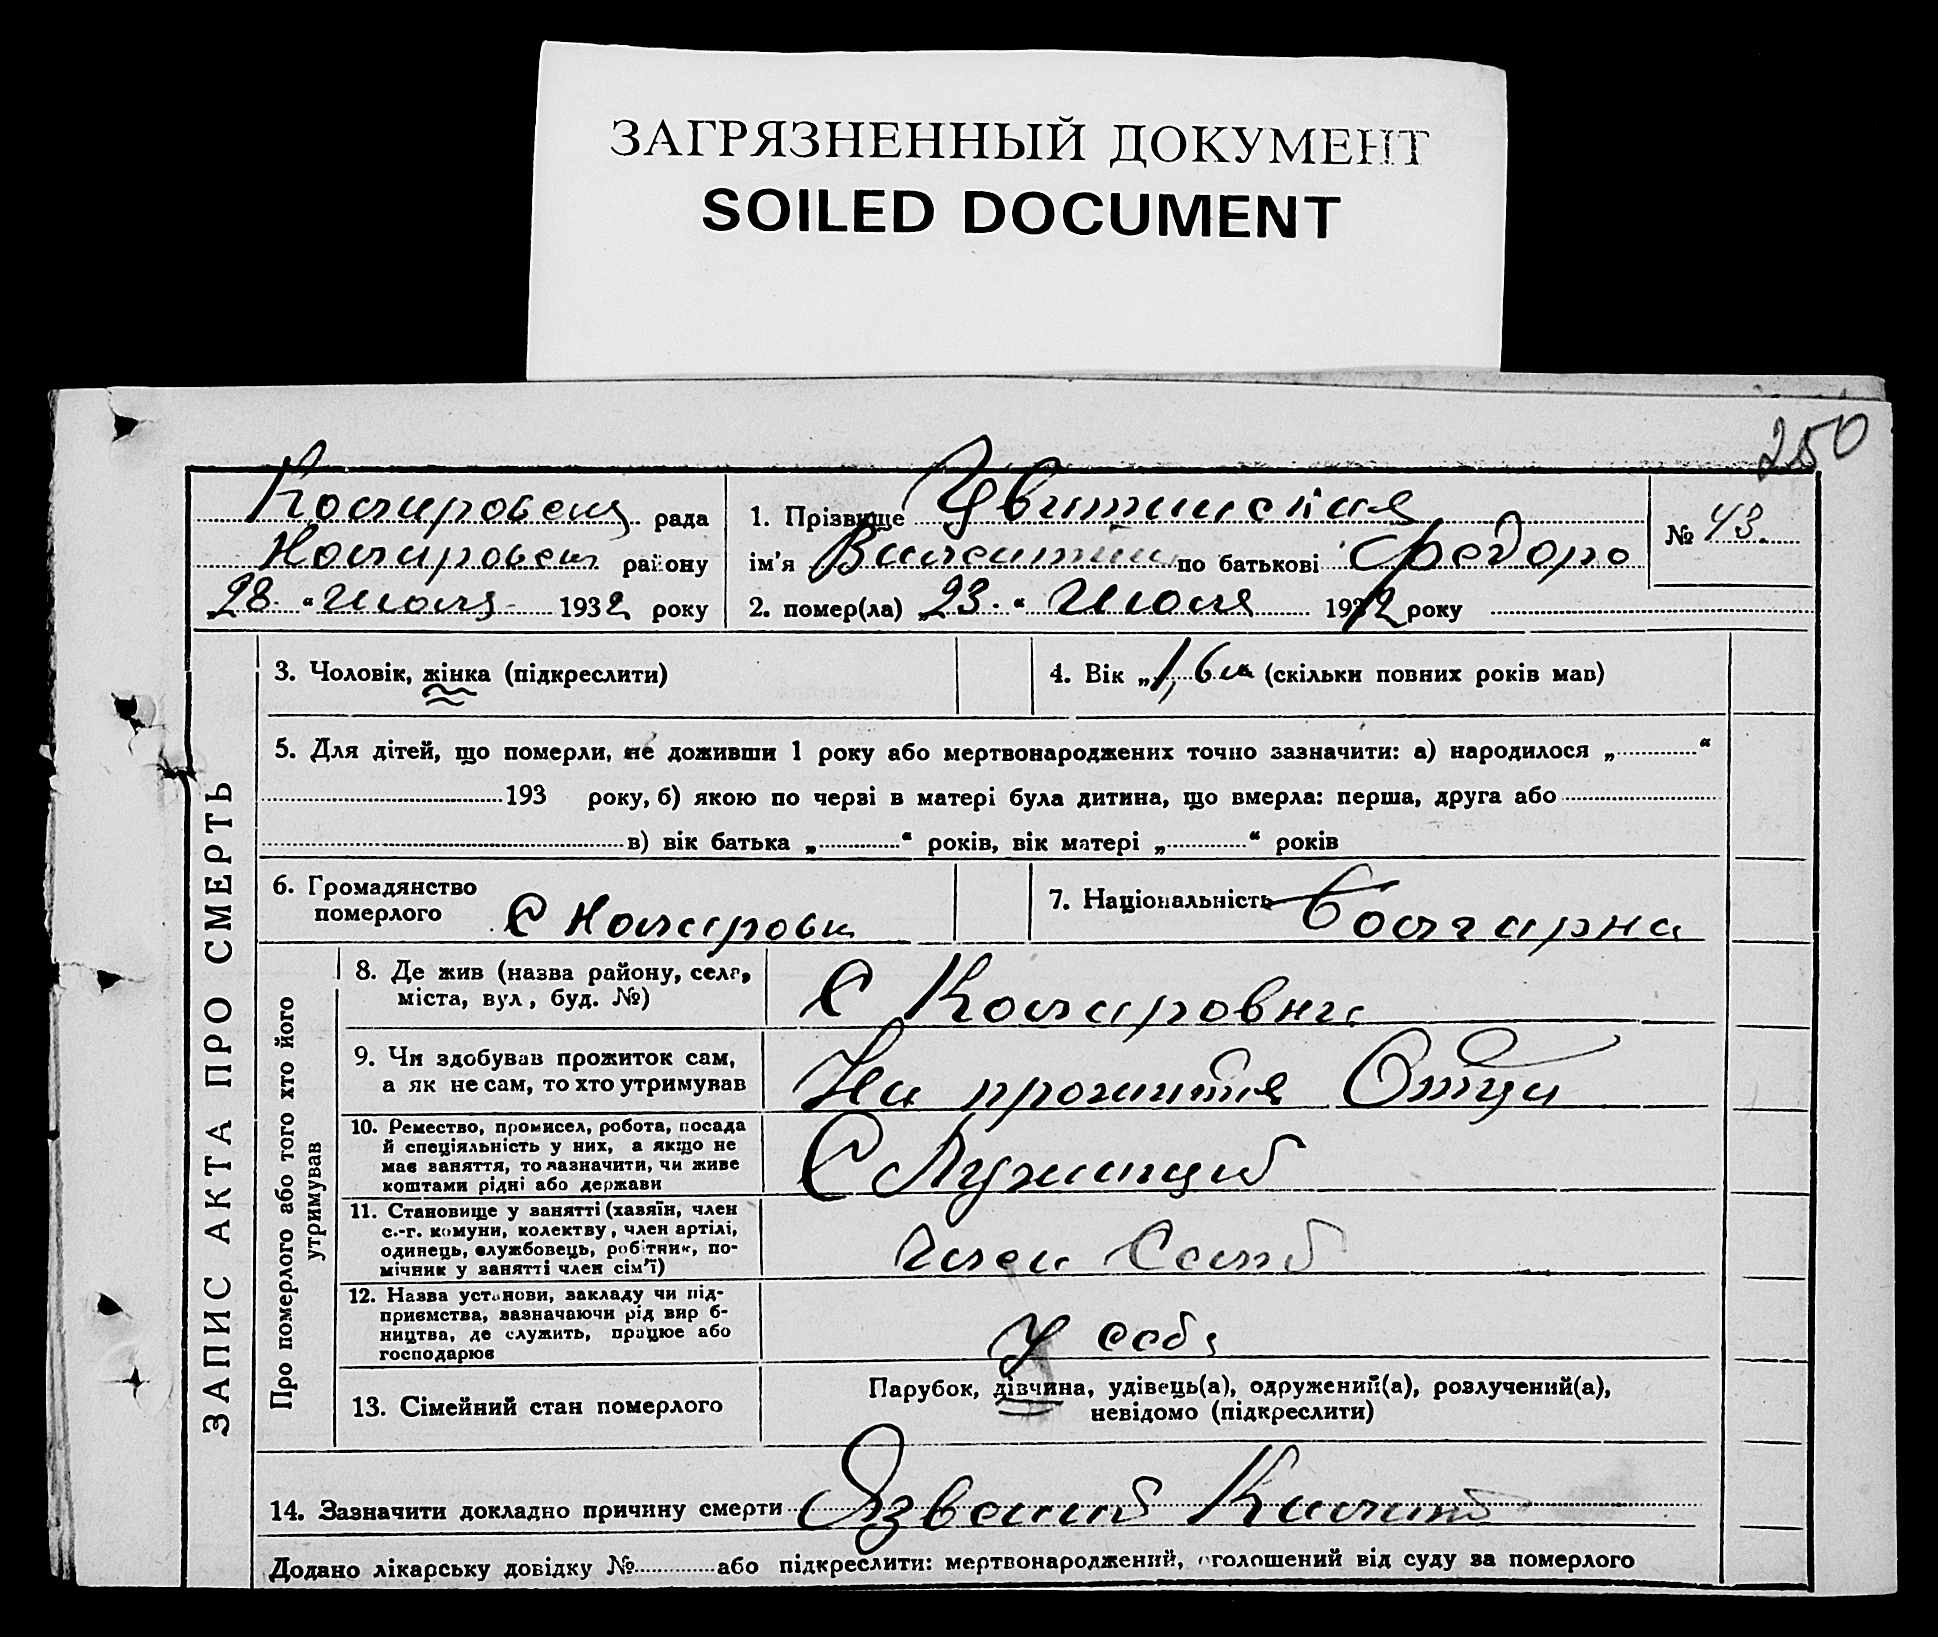 ЗАГРЯЗНЕННЫЙ ДОКУМЕНТ
SOILED DOCUMENT
250
рада
району
28 " Июля 1932 року
1. Прізвище
ім'я Валентин по батькові Федоро
2. помер(ла) „23. " Июля 1932 року
№ 43.
ЗАПИС АКТА ПРО СМЕРТЬ
3. Чоловік, жінка (підкреслити)
4. Вік „1,6 м (скільки повних років мав)
5. Для дітей, що померли, не доживши 1 року або мертвонароджених точно зазначити: а) народилося „ “
193 року, б) якою по черзі в матері була дитина, що вмерла: перша, друга або
в) вік батька „ “ років, вік матері „ “ років
6. Громадянство
померлого
С
7. Національність Болгарка
Про померлого або того хто його
утримував
8. Де жив (назва району, села,
міста, вул, буд. №)
С
9. Чи здобував прожиток сам,
а як не сам, то хто утримував
На Отца
10. Ремество, промисел, робота, посада
й спеціяльність у них, а якщо не
має заняття, то зазначити, чи живе
коштами рідні або держави
11. Становище у занятті (хазяїн, член
с.-г. комуни, колективу, член артілі,
одинець, службовець, робітник, по-
мічник у занятті член сім'ї)
Член
12. Назва установи, закладу чи під-
приємства, зазначаючи рід вироб-
ництва, де служить, працює або
господарює
У себя
13. Сімейний стан померлого
Парубок, дівчина, удівець(а), одружений(а), розлучений(а),
невідомо (підкреслити)
14. Зазначити докладно причину смерти Язвений
Додано лікарську довідку № або підкреслити: мертвонароджений, оголошений від суду за померлого